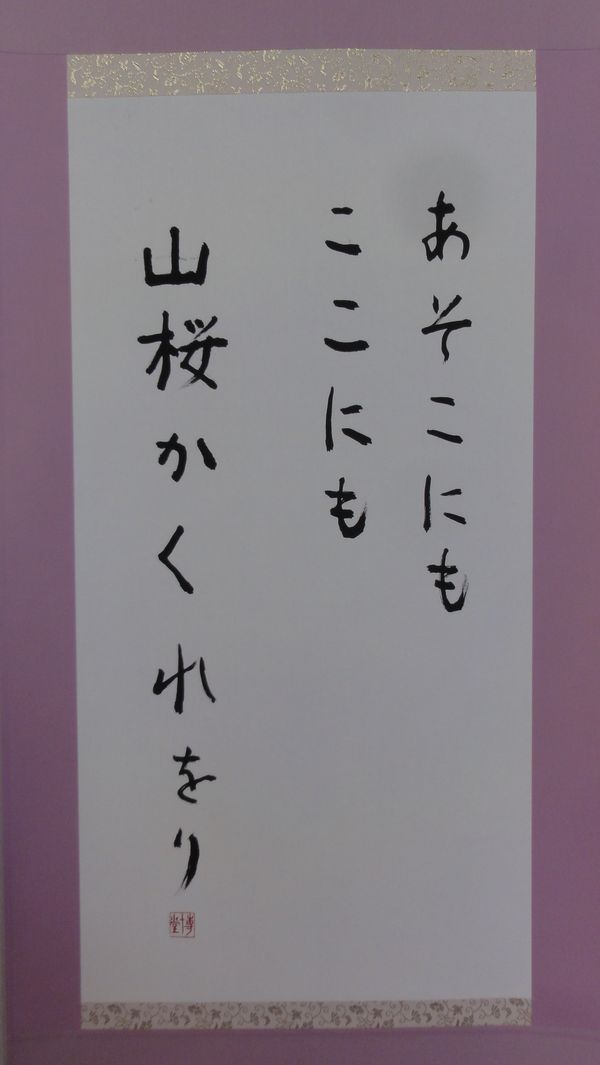 あそこにも
ここにも
山桜かくれをり